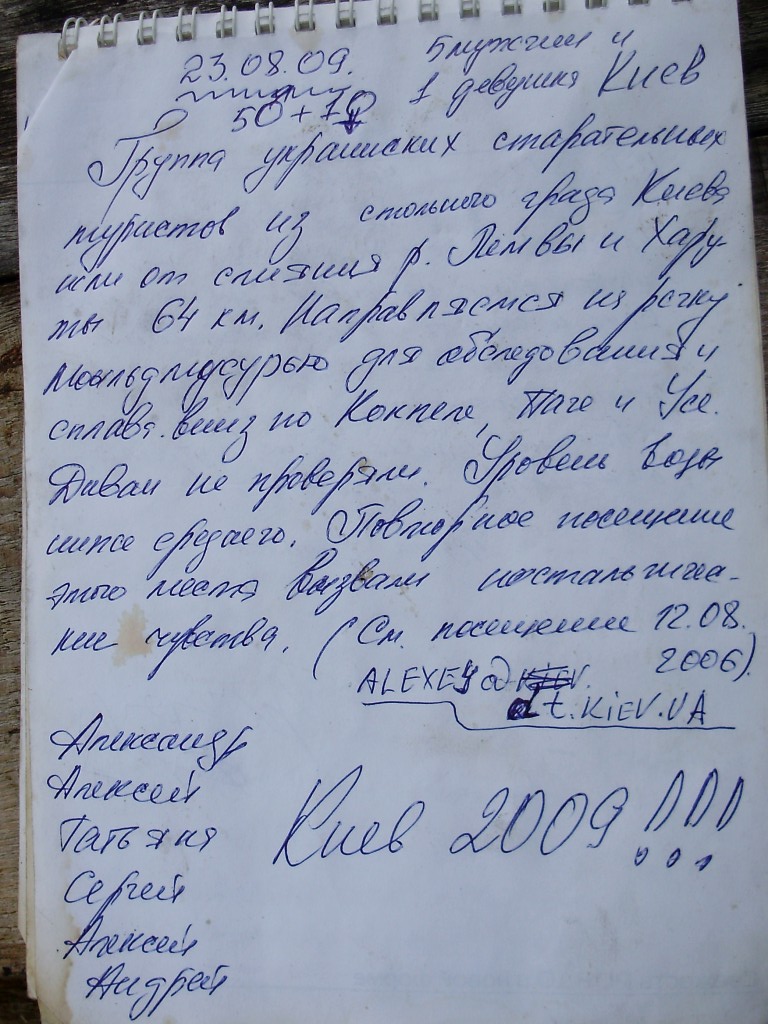 23.08.09. 5 мужчин и
5♂+1♀ 1 девушка Киев
Группа украинских старательных
туристов из стольного града Киева
шли от слияния р. Лемвы и Хару-
ты 64 км. Направляемся на речку
для обследования и
сплава вниз по Кокпеле, Таге и Усе.
Диван не проверяли. Уровень воды
ниже средего. Повторное посещение
этого места вызвали ностальгичес-
кие чувства. (См. посещение 12.08.
2006).
ALEXEY@
dt.KIEV.UA
Александр
Алексей
Татьяна
Сергей
Алексей
Андрей
Киев 2009!!!